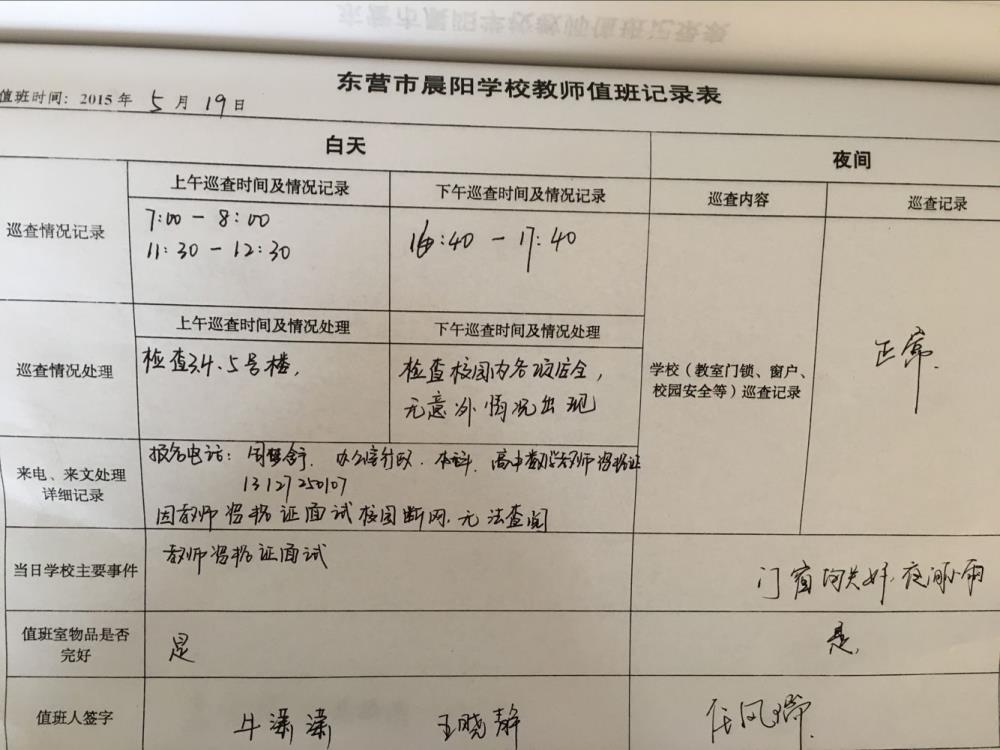 东营市晨阳学校教师值班记录表
值班时间：2015年 5 月 19 日
白天
夜间
上午巡查时间及情况记录
下午巡查时间及情况记录
巡查内容
巡查记录
巡查情况记录
7:00 - 8:00
11:30 - 12:30
16:40 - 17:40
上午巡查时间及情况处理
下午巡查时间及情况处理
巡查情况处理
检查3.4.5号楼,
检查校园内各项安全,
无意外情况出现
学校（教室门锁、窗户、
校园安全等）巡查记录
正常.
来电、来文处理
详细记录
报名电话: 办公室行政. 本科. 高中数学教师资格证
13127250107
因教师资格证面试校园断网.无法查阅
当日学校主要事件
教师资格证面试
门窗均关好.夜间小雨
值班室物品是否
完好
是
是,
值班人签字
牛潇潇
王晓静
任凤